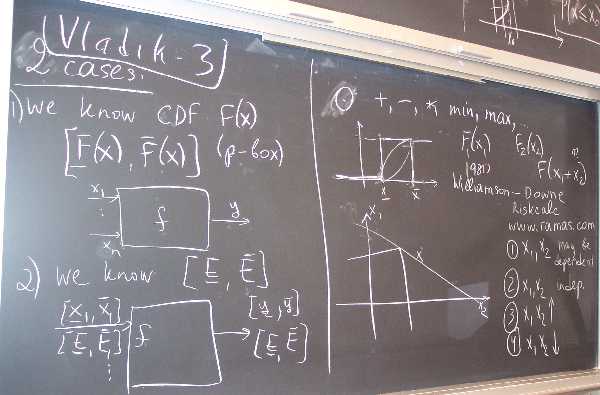 Vladik-3
2 cases:
1) we know CDF F(x)
[F̲(x), F̄(x)] (p-box)
x₁
⋮
xₙ
f
y
2) we know [E̲, Ē]
[x̲₁, x̄₁]
[E̲, Ē]
⋮
f
[y̲, ȳ]
[E̲, Ē]
P(X≤x₀)
+, -, *, min, max, ..
1
x̲
x̄
F₁(x₁) F₂(x₂)
F(x₁+x₂)
1981)
Williamson-Downe
Riskcalc
www.ramas.com
x₁
x₂
① x₁, x₂ may be
dependent
② x₁, x₂ indep.
③ x₁, x₂ ↑
④ x₁ x₂ ↓